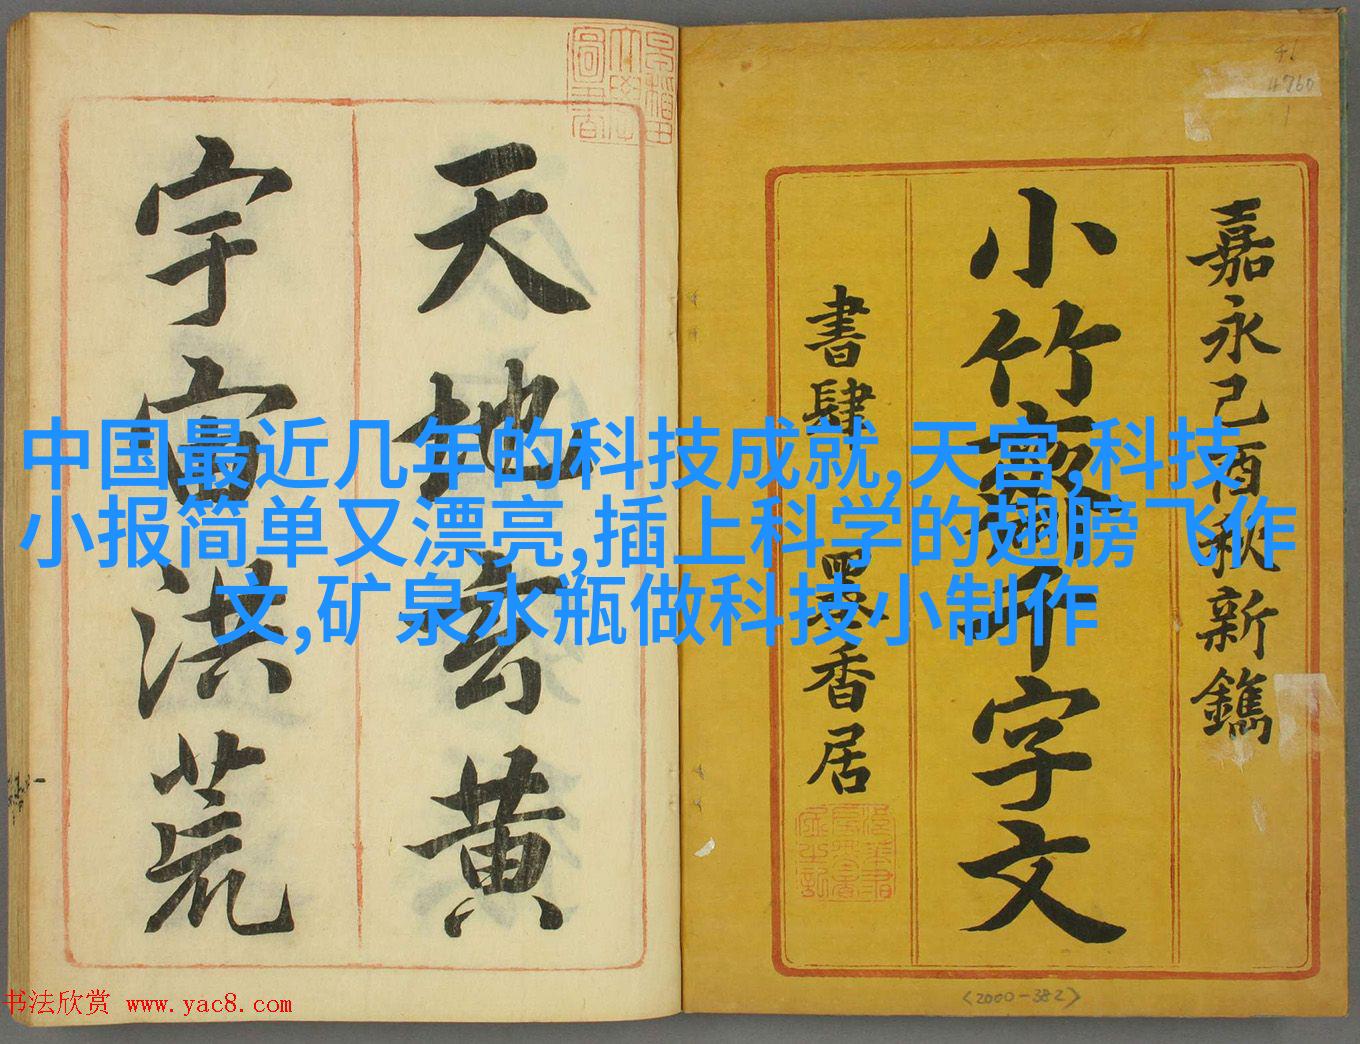 嘉永己酉秋新鐫
小竹齋千字文
書肆 墨香居
天地玄黄
宇宙洪荒
中国最近几年的科技成就,天宫,科技
小报简单又漂亮,插上科学的翅膀飞作
文,矿泉水瓶做科技小制作
书法欣赏 www.yac8.com
4760
<2000-382>